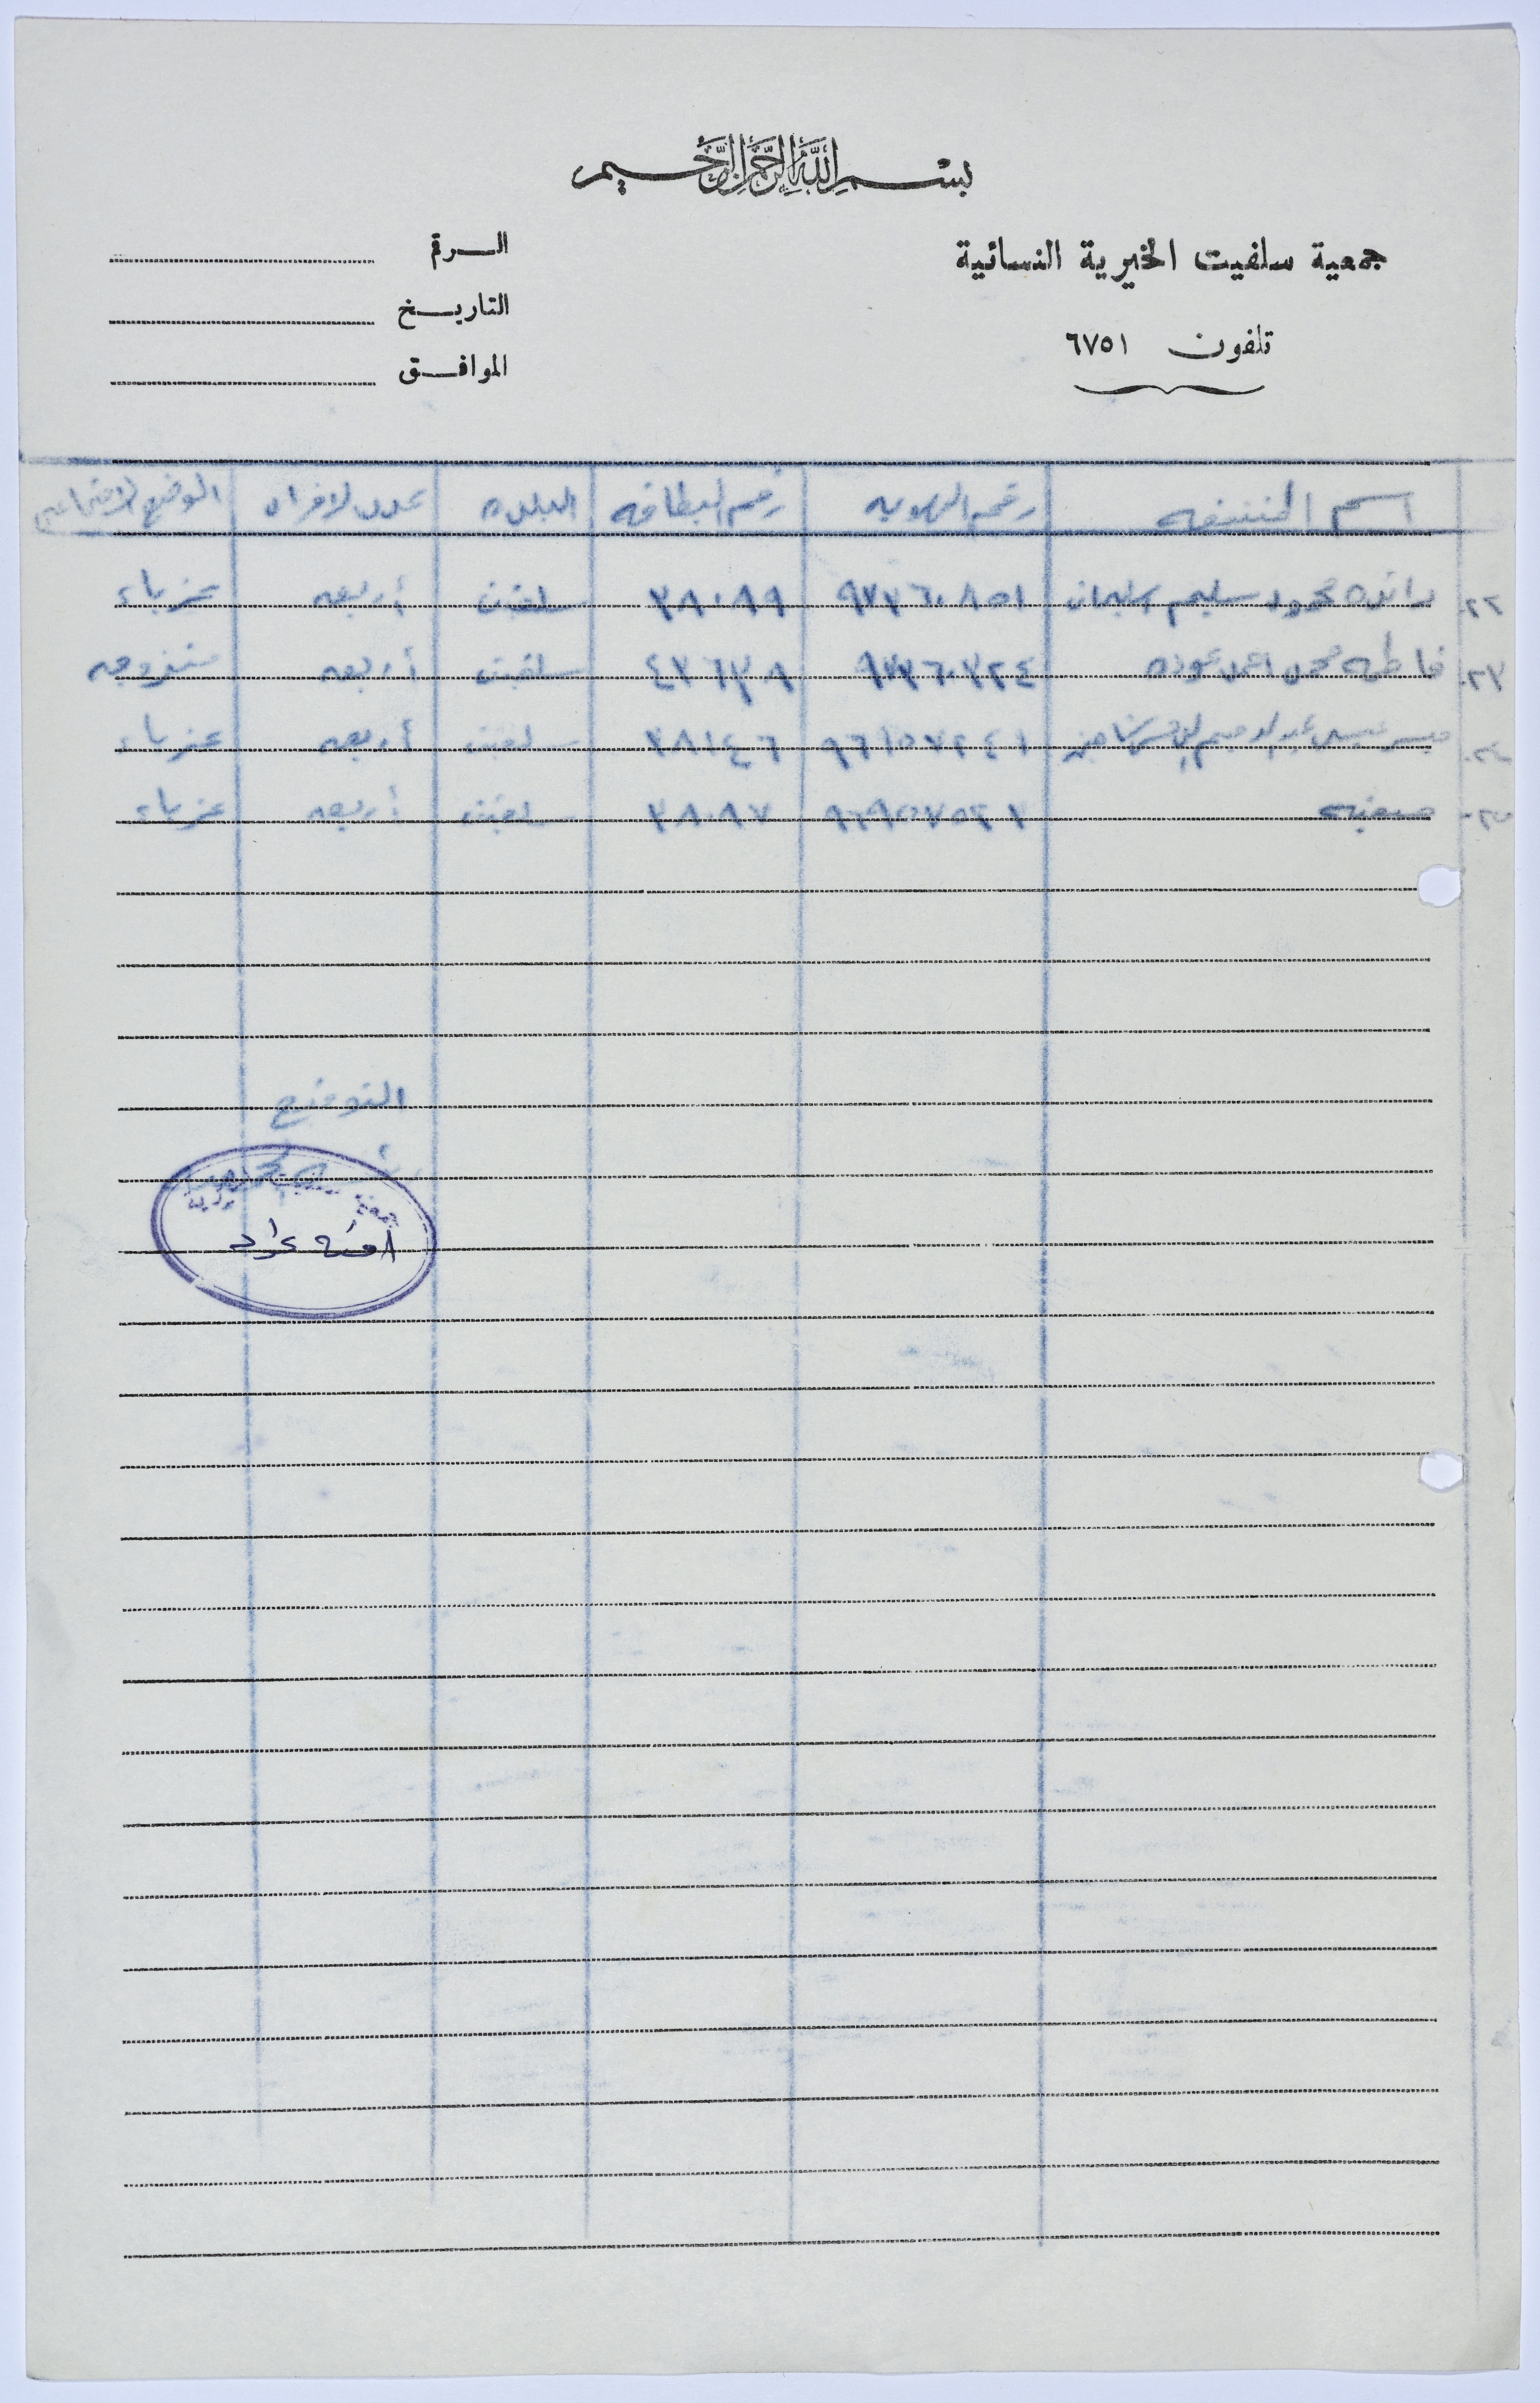 بسم الله الرحمن الرحيم
جمعية سلفيت الخيرية النسائية
تلفون ٦٧٥١
الرقم
التاريخ
الموافق
اسم المنتفعه رقم الهويه رقم البطاقه البلده عدد الافراد الوضع الاجتماعي
٢٢- رائده محمود سليم سليمان ٩٧٣٦٠٨٥١ ٣٨٠٨٩ سلفيت أربعه عزباء
٢٣- فاطمه محمد احمد عوده ٩٧٣٦٠٣٢٤ ٤٣٦٣٨ سلفيت أربعه متزوجه
٢٤- عبد الرحيم ٣٨١٤٦ سلفيت أربعه عزباء
٢٥- ٣٨٠٨٧ سلفيت أربعه عزباء
التوقيع
جمعية سلفيت الخيرية
امنه